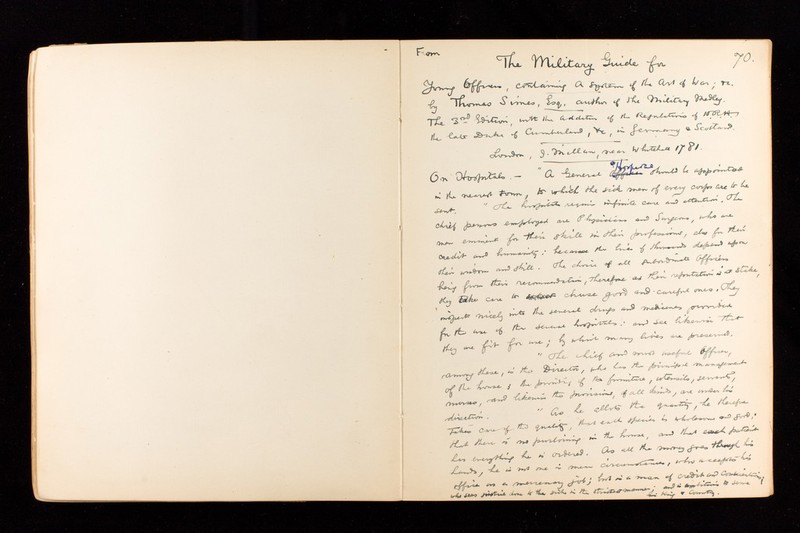 From
70.
The Military Guide for
Young Officers, containing a System of the Art of War; &c.
by Thomas Simes, Esq. author of the Military Medley.
The 3rd Edition, with the addition of the Regulations of H.R.H.
the late Duke of Cumberland, &c, in Germany & Scotland.
London, J. Millan, near Whitehall 1781.
On Hospitals. — "A General Hospital should be appointed
in the nearest town, to which the sick men of every corps are to be
sent. " The hospitals require infinite care and attention. The
chief persons employed are Physicians and Surgeons, who are
men eminent for their skill in their professions, also for their
credit and humanity: because the lives of thousands depend upon
their wisdom and skill. The choice of all subordinate Officers
being from their recommendation, therefore as their reputation is at stake,
they take care to chuse good and careful ones. They
inspect nicely into the several drugs and medicines provided
for the use of the several hospitals: and see likewise that
they are fit for use; by which many lives are preserved.
" The chief and most useful Officer,
among these, is the Director, who has the principal management
of the house; the providing of the furniture, utensils, servants,
nurses, and likewise the provisions, of all kinds, are under his
direction. " As he allots the quantity, he therefore
takes care of the quality, that each species is wholesome and good;
that there is no purloining in the house, and that each patient
has everything he is ordered. As all the money goes through his
hands, he is not one in mean circumstances, who accepts his
office as a mercenary job; but is a man of credit and
who sees justice done to the sick in the strictest manner; and is ambitious to serve
his King & Country.